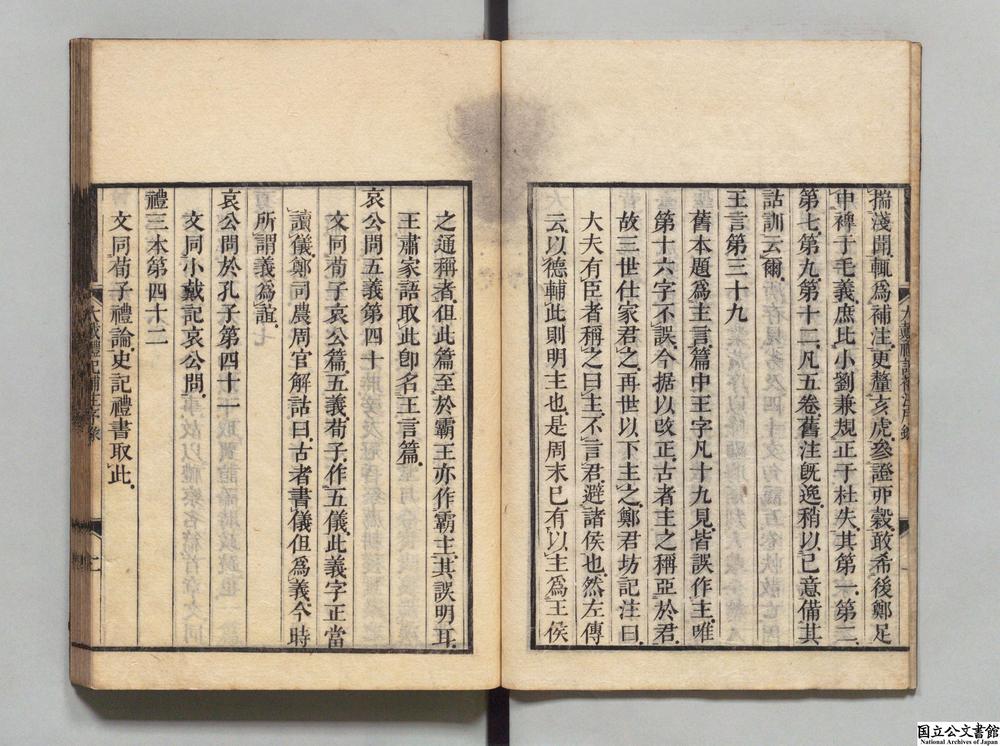 揣淺聞輒爲補注更釐亥虎參證戼穀敢希後鄭足
申裨于毛義庶比小劉兼規正于杜失其第一第二
第七第九第十二凡五卷舊注旣逸稍以己意備其
詁訓云爾
王言第三十九
舊本題爲主言篇中王字凡十九見皆誤作主唯
第十六字不誤今据以改正古者主之稱亞於君
故三世仕家君之再世以下主之鄭君坊記注曰
大夫有臣者稱之曰主不言君避諸侯也然左傳
云以德輔此則明主也是周末已有以主爲王侯
之通稱者但此篇至於霸王亦作霸主其誤明耳
王肅家語取此卽名王言篇
哀公問五義第四十
文同荀子哀公篇五義荀子作五儀此義字正當
讀儀鄭司農周官解詁曰古者書儀但爲義今時
所謂義爲誼
哀公問於孔子第四十一
文同小戴記哀公問
禮三本第四十二
文同荀子禮論史記禮書取此
大戴禮記補注序錄
国立公文書館
National Archives of Japan